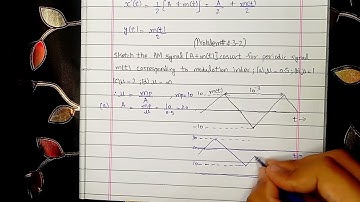 x'(t) = 1/2 [A + m(t)] = A/2 + m(t)/2
y(t) = m(t)/2
Problem# 4.3-2)
Sketch the AM signal [A+m(t)] cosωct for periodic signal
m(t) corresponding to modulation index; (a) μ = 0.5; (b) μ = 1
(c) μ = 2; (d) μ = ∞
∴ μ = mp/A , mp = 10
m(t)
10⁻³
(a) A = mp/μ = 10/0.5 = 20
-10
t→
10
t→